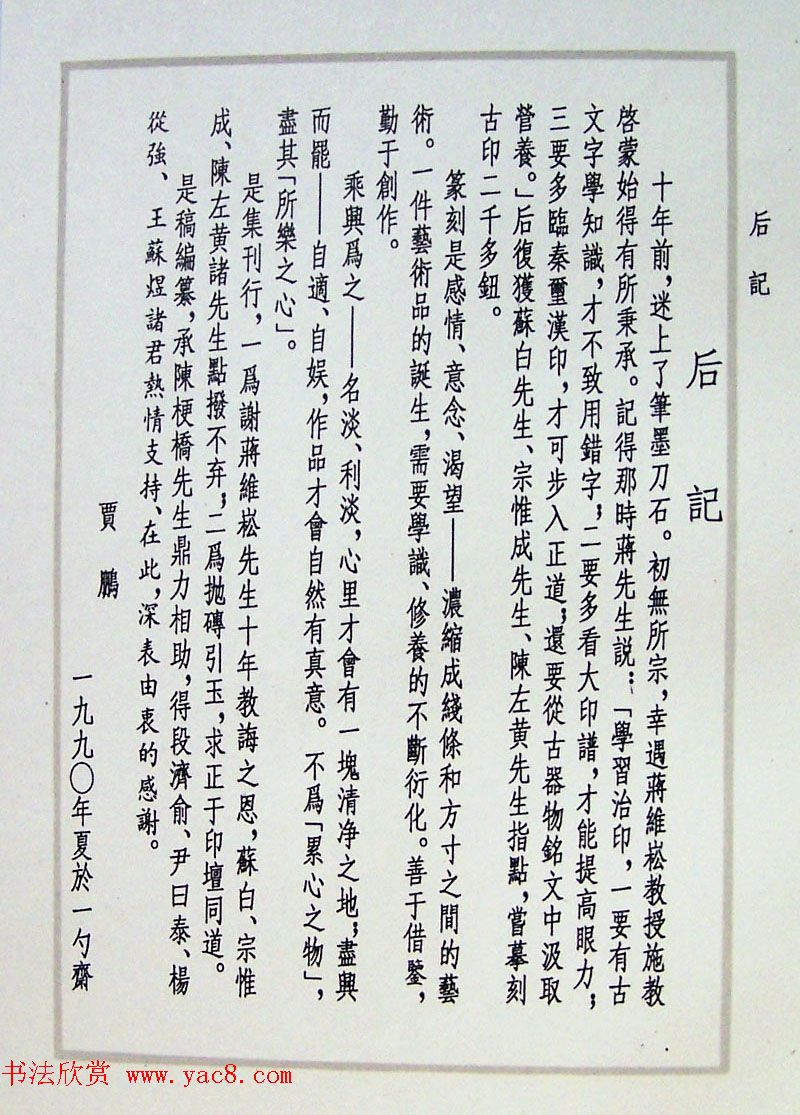 后記
后記
十年前，迷上了筆墨刀石。初無所宗，幸遇蔣維崧教授施教
啓蒙始得有所秉承。記得那時蔣先生説：「學習治印，一要有古
文字學知識，才不致用錯字；二要多看大印譜，才能提高眼力；
三要多臨秦璽漢印，才可步入正道；還要從古器物銘文中汲取
營養。」后復獲蘇白先生、宗惟成先生、陳左黄先生指點，嘗摹刻
古印二千多鈕。
篆刻是感情、意念、渴望——濃縮成綫條和方寸之間的藝
術。一件藝術品的誕生，需要學識、修養的不斷衍化。善于借鑒，
勤于創作。
乘興爲之——名淡、利淡，心里才會有一塊清净之地；盡興
而罷——自適、自娱，作品才會自然有真意。不爲「累心之物」，
盡其「所樂之心」。
是集刊行，一爲謝蔣維崧先生十年教誨之恩，蘇白、宗惟
成、陳左黄諸先生點撥不弃；二爲抛磚引玉，求正于印壇同道。
是稿編纂，承陳梗橋先生鼎力相助，得段濟俞、尹曰泰、楊
從強、王蘇煜諸君熱情支持、在此，深表由衷的感謝。
賈鵬
一九九〇年夏於一勺齋
书法欣赏 www.yac8.com